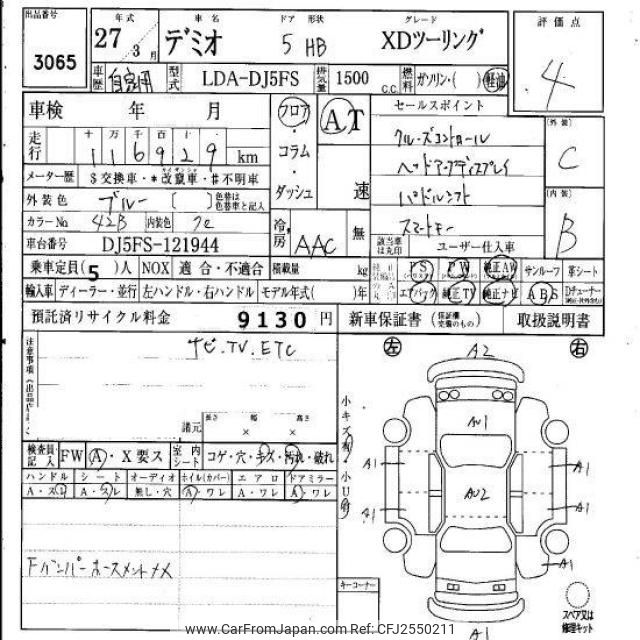 出品番号 年式 車名 ドア 形状 グレード 評価点
3065 27 3月 デミオ 5 HB XDツーリング 4
車歴 自家用 型式 LDA-DJ5FS 排気量 1500 c.c. 燃料 ガソリン・( ) 軽油
車検 年 月 フロア AT セールスポイント (外装)
十 万 千 百 十 一
走行 1 1 6 9 2 9 km コラム クルーズコントロール C
メーター歴 $交換車・*改竄車・#不明車 ヘッドアップディスプレイ
外装色 ブルー ( ) 色替は色替車と記入 ダッシュ 速 パドルシフト (内装)
カラーNo 42B 内装色 クロ 冷房 AAC 無 スマートキー B
車台番号 DJ5FS-121944 該当車は丸印 ユーザー仕入車
乗車定員(5)人 NOX 適合・不適合 積載量 kg PS PW 純正AW サンルーフ 革シート
輸入車 ディーラー・並行 左ハンドル・右ハンドル モデル年式( )年 エアバック 純正TV 純正ナビ ABS
預託済リサイクル料金 9130 円 新車保証書 (保証欄完備のもの) 取扱説明書
注意事項 ナビ.TV.ETC 左 A2 右
諸元 長さ 幅 高さ × ×
小キズ有 小U有
検査員記入 FW A・X要ス 室内シート コゲ・穴・キズ・汚れ・破れ
ハンドル シート オーディオ ホイル(カバー) エアロ ドアミラー
A・スレ A・スレ 無し・穴 A・ワレ A・ワレ A・ワレ
AU1
A1 A1
AU2
A1 A1
A1
Fバンパーホースメントナメ
キーコーナー
スペア又は修理キット
A1
www.CarFromJapan.com Ref: CFJ2550211